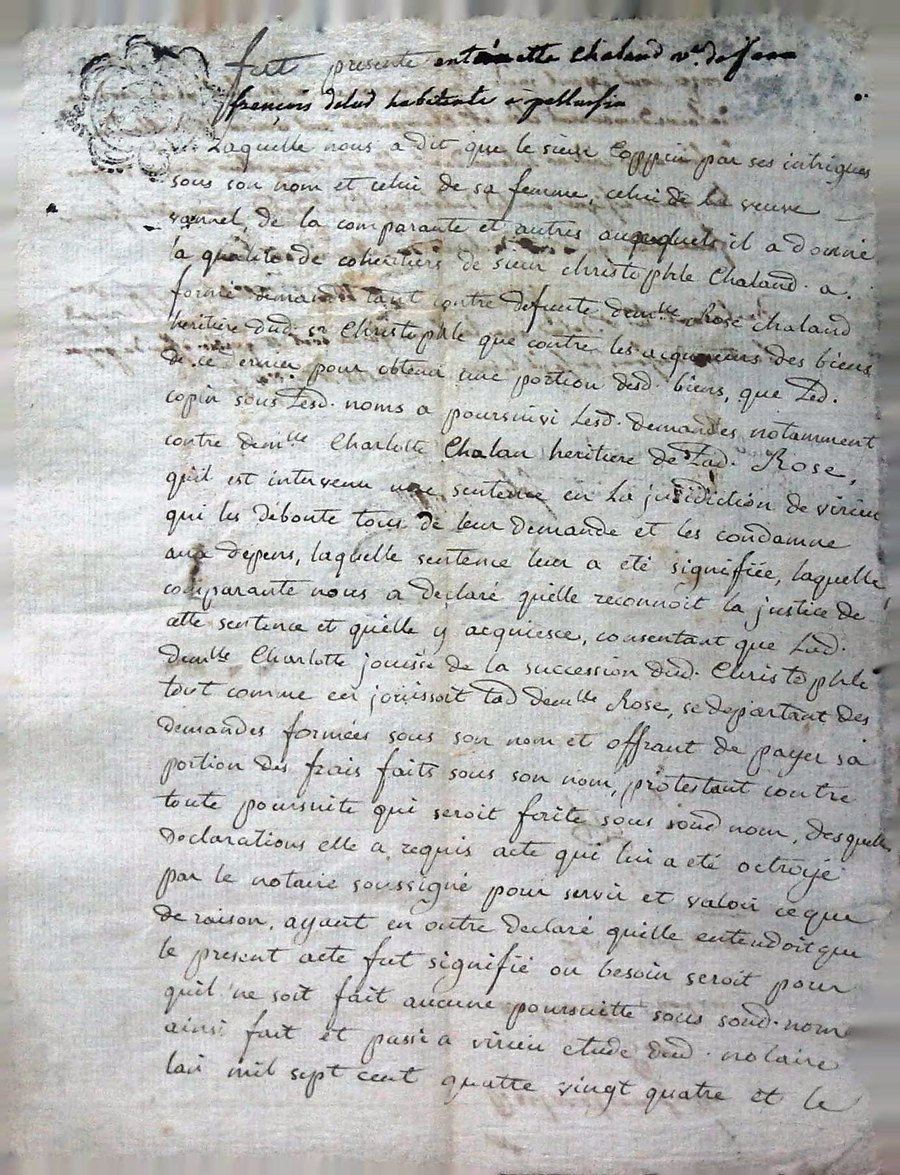 fut presente antoinette chaland ve. de jean
françois delud habitante a pellussin
Laquelle nous a dit que le sieur Coppin par ses intrigues
sous son nom et celui de sa femme, celui de la veuve
vannel, de la comparante et autres auxquels il a donné
la qualité de coheritiers de sieur christophle Chaland. a.
formé demande tant contre defunte demlle Rose chaland
heritière dud. sr Christophle que contre les acquereurs des biens
de ce dernier pour obtenir une portion desd. biens, que Led.
copin sous Lesd. noms a poursuivi Lesd. demandes notamment
contre demlle Charlotte Chalan heritiere de Lad. Rose,
quil est intervenu une sentence en La jurisdiction de virieu
qui les deboute tous de leur demande et les condamne
aux depens, laquelle sentence leur a eté signifiée, laquelle
comparante nous a declaré quelle reconnoit la justice de
cette sentence et quelle y acquiesce, consentant que Lad.
demlle Charlotte jouisse de la succession dud. Christophle
tout comme en jouissoit Lad demlle Rose, se departant des
demandes formées sous son nom et offrant de payer sa
portion des frais faits sous son nom, protestant contre
toute poursuite qui seroit faite sous sond nom, desquelles
declarations elle a requis acte qui lui a eté octroyé
par le notaire soussigné pour servir et valoir ce que
de raison, ayant en outre declaré quelle entendoit que
le present acte fut signifié ou besoin seroit pour
quil ne soit fait aucune poursuitte sous sond. nom
ainsi fait et passé a virieu etude dud. notaire
lan mil sept cent quatte vingt quatre et le